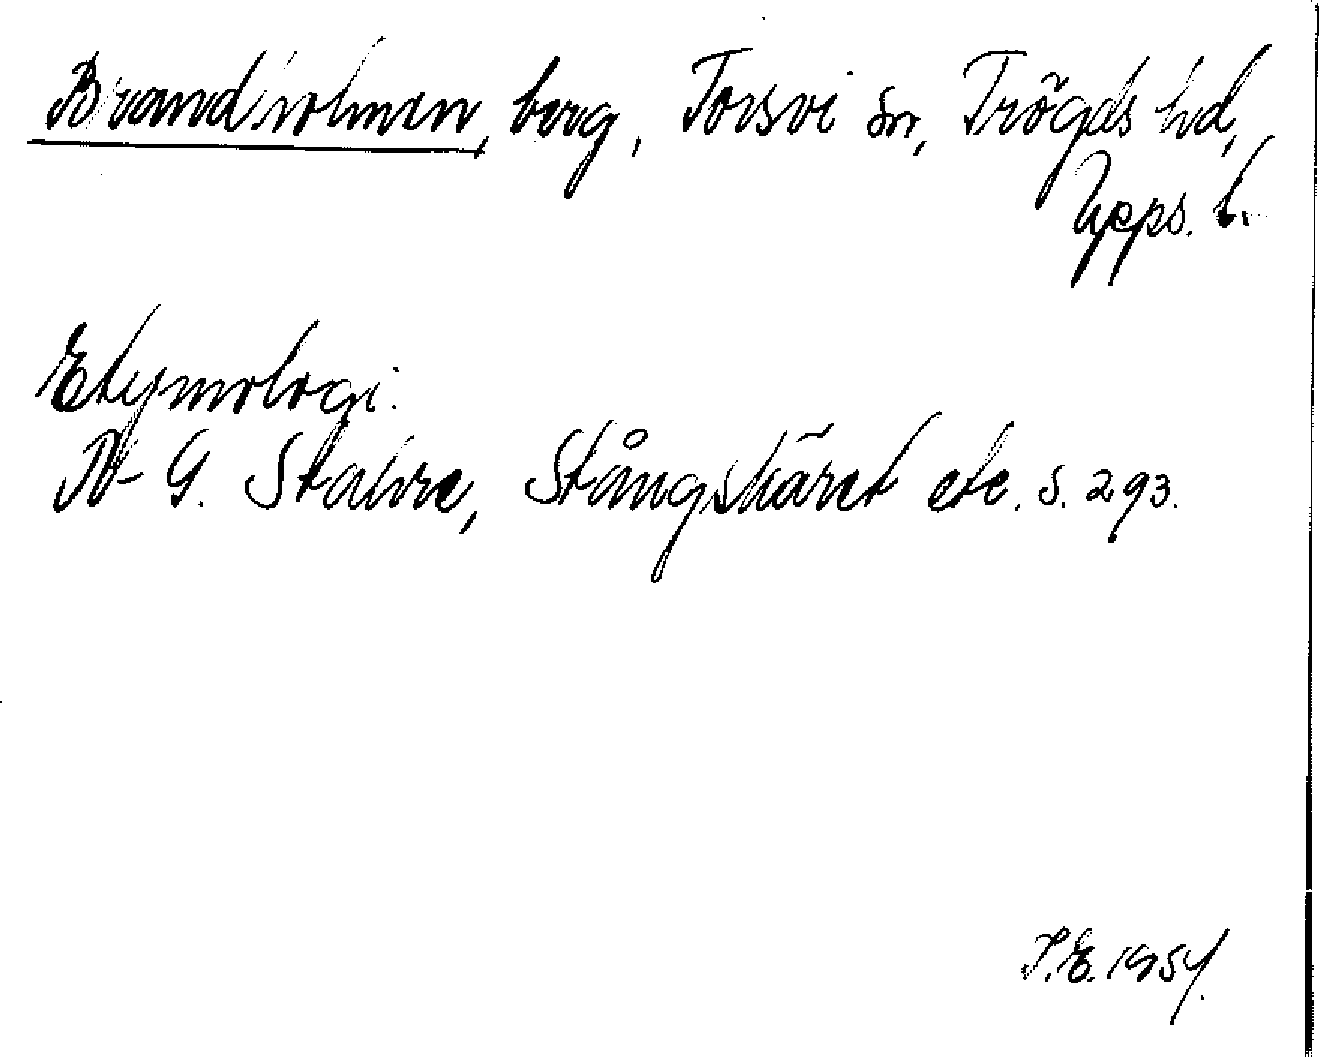 Brandholmen, berg, Torsvi sn, Trögds hd,
Upps. l.
Etymologi:
N-G. Stahre, Stångskäret etc. s. 293.
1954.